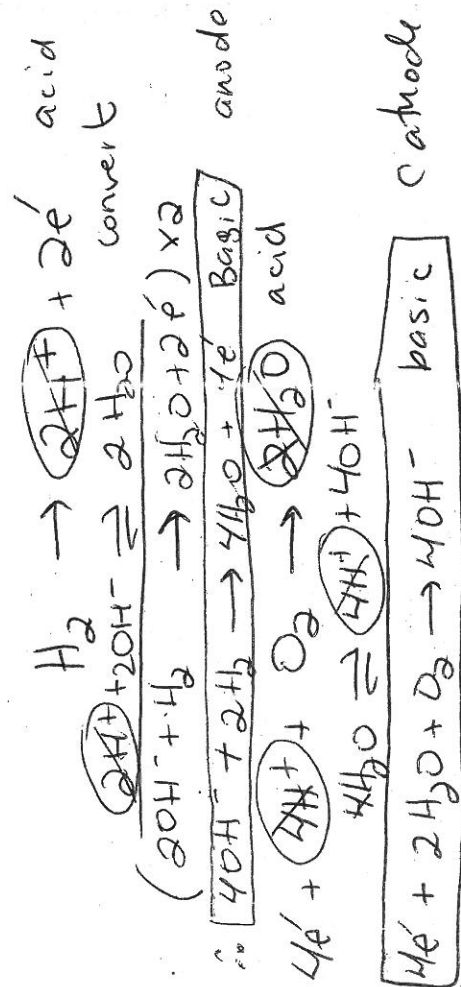 H₂ → 2H⁺ + 2é acid
2H⁺ + 2OH⁻ ⇌ 2H₂O convert
(2OH⁻ + H₂ → 2H₂O + 2é) x2
∴ 4OH⁻ + 2H₂ → 4H₂O + 4é Basic anode
4é + 4H⁺ + O₂ → 2H₂O acid
4H₂O ⇌ 4H⁺ + 4OH⁻
4é + 2H₂O + O₂ → 4OH⁻ basic Cathode